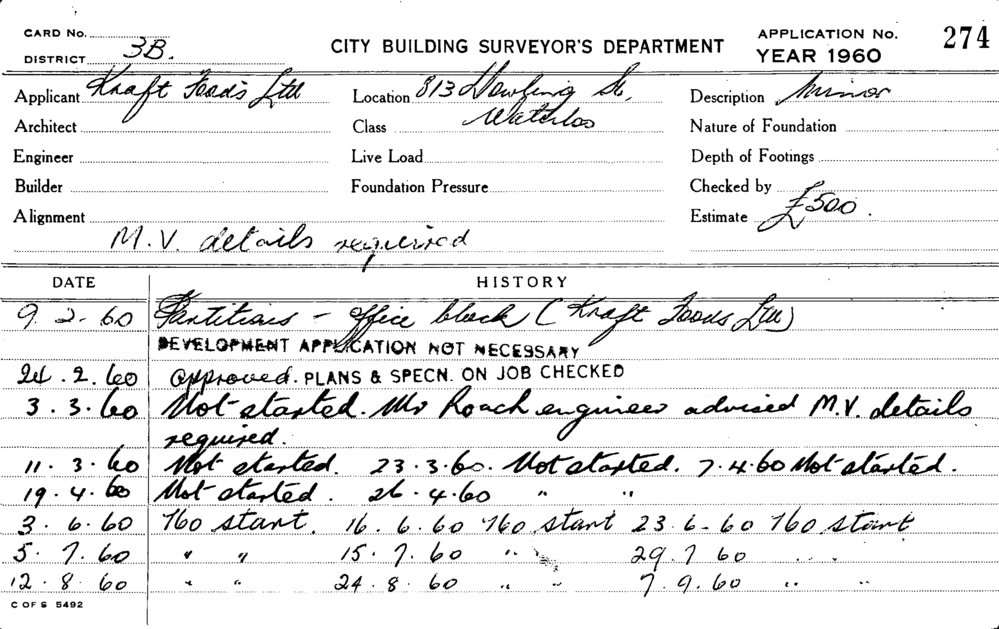 CARD No.
DISTRICT 3B.
CITY BUILDING SURVEYOR'S DEPARTMENT
APPLICATION No. 274
YEAR 1960
Applicant Kraft Foods Ltd
Location 813 Dowling St,
Waterloo
Description Minor
Architect
Class
Nature of Foundation
Engineer
Live Load
Depth of Footings
Builder
Foundation Pressure
Checked by
Alignment
Estimate £500.
M.V. details required
DATE HISTORY
9.2.60 Partitions - office block (Kraft Foods Ltd)
DEVELOPMENT APPLICATION NOT NECESSARY
24.2.60 Approved. PLANS & SPECN. ON JOB CHECKED
3.3.60 Not started. Mr Roach engineer advised M.V. details
required.
11.3.60 Not started. 23.3.60. Not started. 7.4.60 Not started.
19.4.60 Not started. 26.4.60 " "
3.6.60 No start. 16.6.60 No start 23.6.60 No start
5.7.60 " " 15.7.60 " " 29.7.60 " "
12.8.60 " " 24.8.60 " " 7.9.60 " "
C OF S 5492